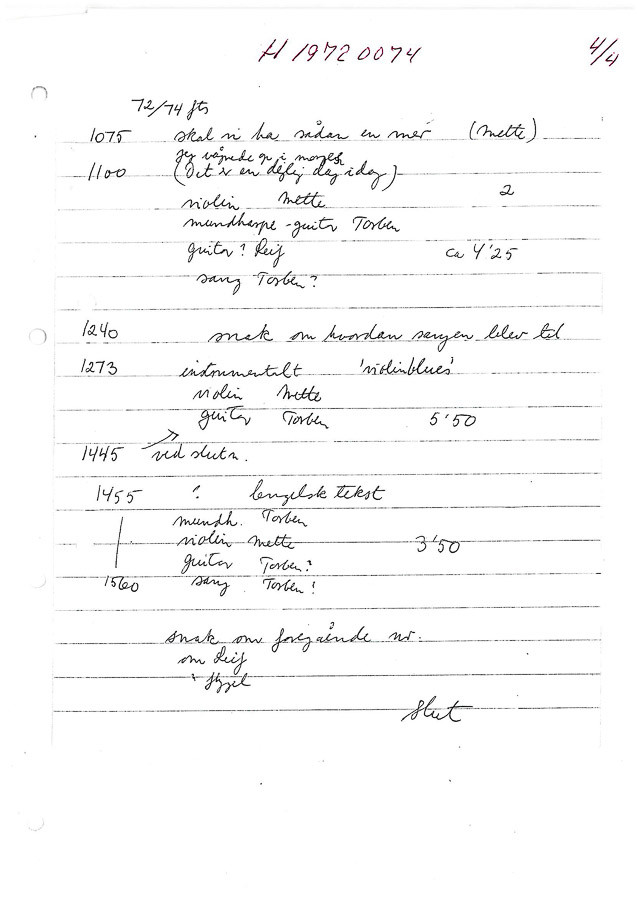 H 1972 0074 4/4
72/74 fts
1075 skal vi ha sådan en mér (Mette)
jeg vågnede op i morges
1100 (Det er en dejlig dag i dag)
2
violin Mette
mundharpe - guitar Torben
guitar? Leif ca 4'25
sang Torben?
1240 snak om hvordan sangen blev til
1273 instrumentalt 'violinblues'
violin Mette
guitar Torben 5'50
1445 ved slutn.
1455 ? engelsk tekst
mundh. Torben
violin Mette 3'50
guitar Torben?
1560 sang Torben!
snak om foregående nr.
om Leif
Slut